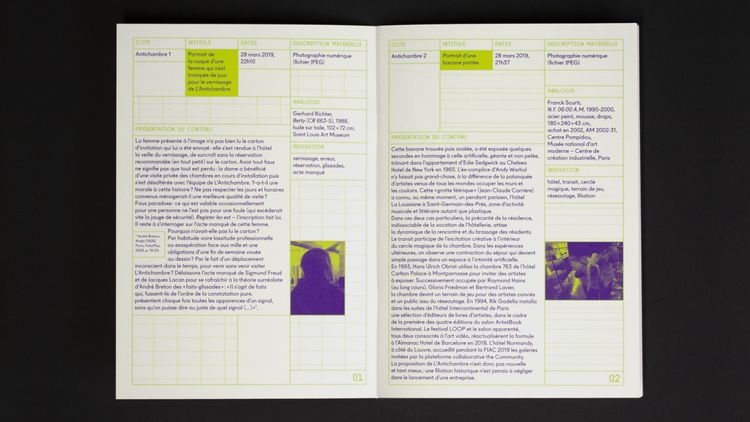 COTE
INTITULÉ
DATES
DESCRIPTION MATÉRIELLE
Antichambre 1
Portrait de
la nuque d'une
femme qui s'est
trompée de jour
pour le vernissage
de L'Antichambre
28 mars 2019,
22h10
Photographie numérique
(fichier JPEG)
ANALOGIE
Gerhard Richter,
Betty (CR 663-5), 1988,
huile sur toile, 102 × 72 cm,
Saint Louis Art Museum
PRÉSENTATION DU CONTENU
La femme présente à l'image n'a pas bien lu le carton
d'invitation qui lui a été envoyé : elle s'est rendue à l'hôtel
la veille du vernissage, de surcroît sans la réservation
recommandée (en tout petit) sur le carton. Avoir tout faux
ne signifie pas que tout est perdu : la dame a bénéficié
d'une visite privée des chambres en cours d'installation puis
s'est désaltérée avec l'équipe de L'Antichambre. Y-a-t-il une
morale à cette histoire ? Ne pas respecter les jours et horaires
convenus ménagerait-il une meilleure qualité de visite ?
Faux paradoxe : ce qui est valable occasionnellement
pour une personne ne l'est pas pour une foule (qui excéderait
vite la jauge de sécurité). Register lex est – l'inscription fait loi.
Il reste à s'interroger sur l'acte manqué de cette femme.
Pourquoi n'avait-elle pas lu le carton ?
Par habitude voire lassitude professionnelle
ou exaspération face aux mille et une
obligations d'une fin de semaine vouée
au dessin ? Par le fait d'un déplacement
inconscient dans le temps, pour venir sans venir visiter
L'Antichambre ? Délaissons l'acte manqué de Sigmund Freud
et de Jacques Lacan pour se rafraîchir à la théorie surréaliste
d'André Breton des « faits-glissades » : « Il s'agit de faits
qui, fussent-ils de l'ordre de la constatation pure,
présentent chaque fois toutes les apparences d'un signal,
sans qu'on puisse dire au juste de quel signal (...)* ».
* André Breton,
Nadja (1928),
INDEXATION
vernissage, erreur,
réservation, glissades,
acte manqué
01
COTE
INTITULÉ
DATES
DESCRIPTION MATÉRIELLE
Antichambre 2
Portrait d'une
banane portée
28 mars 2019,
21h37
Photographie numérique
(fichier JPEG)
ANALOGIE
Franck Scurti,
N.Y. 06:00 A.M, 1995-2000,
acier peint, mousse, draps,
180 × 240 × 43 cm,
achat en 2002, AM 2002-31,
Centre Pompidou,
Musée national d'art
moderne – Centre de
création industrielle, Paris
PRÉSENTATION DU CONTENU
Cette banane trouvée puis avalée, a été exposée quelques
secondes en hommage à celle artificielle, géante et non pelée,
trônant dans l'appartement d'Edie Sedgwick au Chelsea
Hotel de New York en 1965. L'ex-complice d'Andy Warhol
n'y faisait pas grand-chose, à la différence de la palanquée
d'artistes venus de tous les mondes occuper les murs et
les couloirs. Cette « grotte féérique » (Jean-Claude Carrière)
a connu, au même moment, un pendant parisien, l'hôtel
La Louisiane à Saint-Germain-des-Prés, zone d'activité
musicale et littéraire autant que plastique.
Dans ces deux cas particuliers, la précarité de la résidence,
indissociable de la vocation de l'hôtellerie, attise
la dynamique de la rencontre et du brassage des résidents.
Le transit participe de l'excitation créatrice à l'intérieur
du cercle magique de la chambre. Dans les expériences
ultérieures, on observe une contraction du séjour qui devient
simple passage dans un espace à l'intimité artificielle.
En 1993, Hans Ulrich Obrist utilisa la chambre 763 de l'hôtel
Carlton Palace à Montparnasse pour inviter des artistes
à exposer. Successivement occupée par Raymond Hains
(au long cours), Gloria Friedman et Bertrand Lavier,
la chambre devint un terrain de jeu pour des artistes conviés
et un public issu du réseautage. En 1994, Rik Gadella installa
dans les suites de l'hôtel Intercontinental de Paris
une sélection d'éditeurs de livres d'artistes, dans le cadre
de la première des quatre éditions du salon ArtistBook
International. Le festival LOOP et le salon apparenté,
tous deux consacrés à l'art vidéo, réactualisèrent la formule
à l'Almanac Hotel de Barcelone en 2018. L'hôtel Normandy,
à côté du Louvre, accueillit pendant la FIAC 2019 les galeries
invitées par la plateforme collaborative the Community.
La proposition de L'Antichambre n'est donc pas nouvelle
et tant mieux ; une filiation historique n'est jamais à négliger
dans le lancement d'une entreprise.
INDEXATION
hôtel, transit, cercle
magique, terrain de jeu,
réseautage, filiation
02